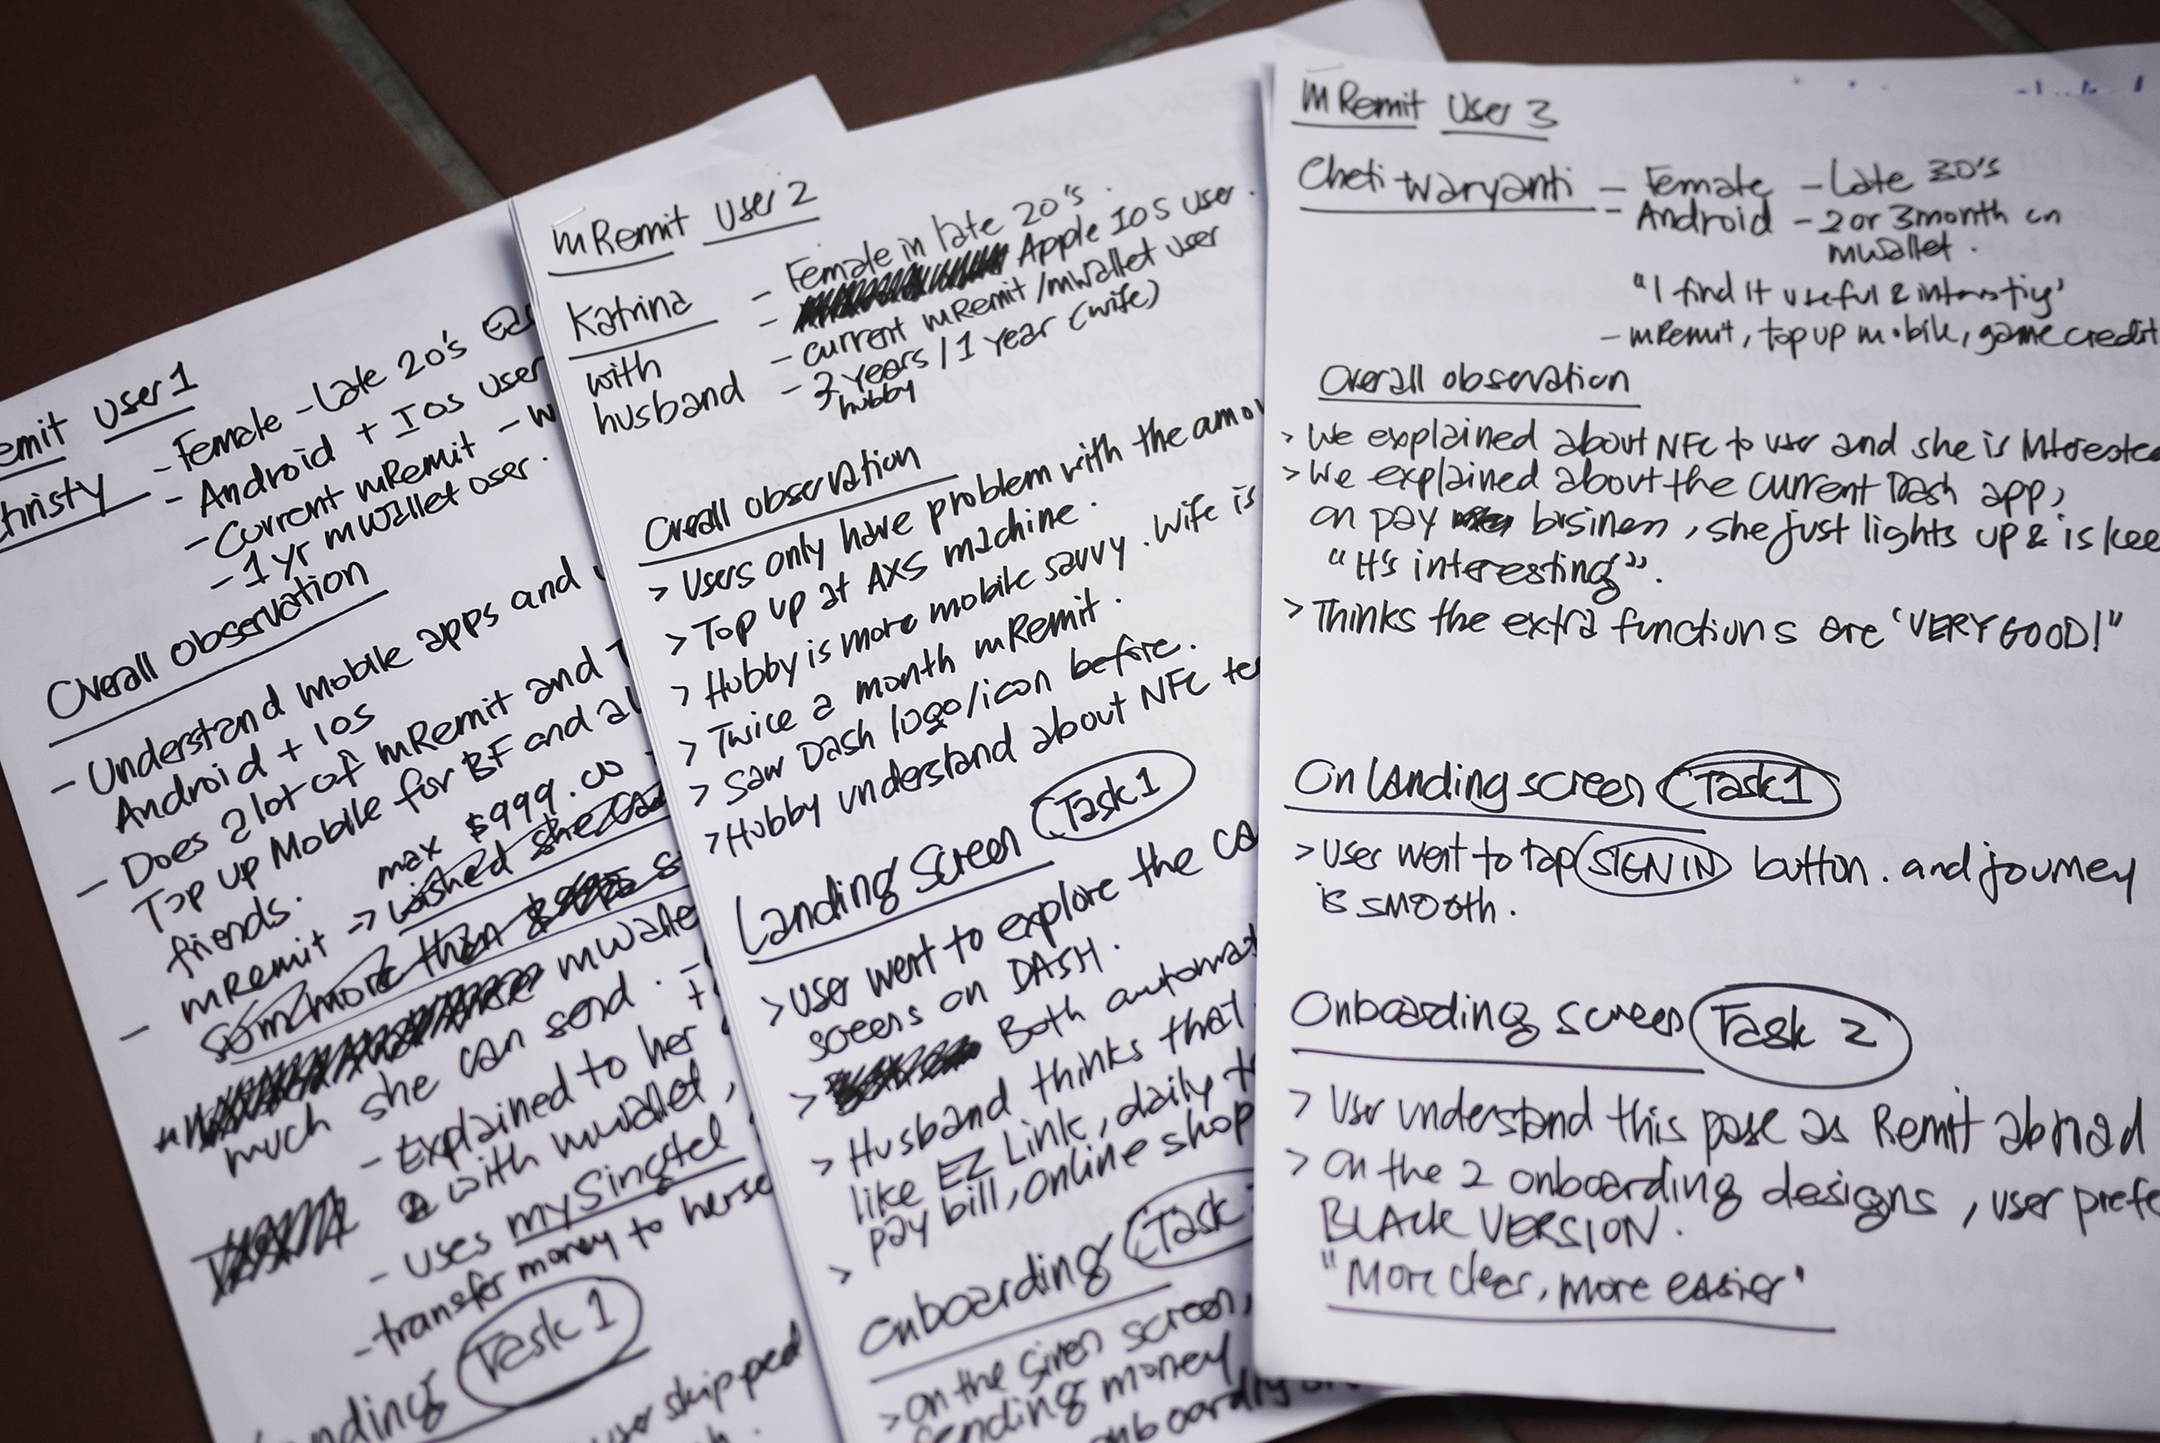 emit User 1
hristy - Female - Late 20's
- Android + IOS user
- Current mRemit - W
- 1 yr mWallet user.
Overall observation
- Understand mobile apps and
Android + IOS
- Does a lot of mRemit and T
Top up Mobile for BF and al
friends.
max $999.00
- mRemit -> wished she
som more than
mWalle
much she can send.
- Explained to her
with mWallet,
- uses mySingtel
- transfer money to herse
nding Task 1
user skipped
mRemit User 2
Katrina - Female in late 20's.
with - Apple IOS user.
husband - current mRemit/mWallet user
- 2 years / 1 year (wife)
hubby
Overall observation
> Users only have problem with the amou
> Top up at AXS machine.
> Hubby is more mobile savvy. Wife is
> Twice a month mRemit.
> Saw Dash logo/icon before.
> Hubby understand about NFC te
Landing Screen Task 1
> User went to explore the ca
screens on DASH.
> Both automat
> Husband thinks that
like EZ Link, daily t
pay bill, online shop
>
Onboarding Task
> On the given screen,
sending money
onboarding
mRemit User 3
Cheti Waryanti - Female - Late 30's
- Android - 2 or 3 month on
mWallet.
"I find it useful & intersting"
- mRemit, top up mobile, game credit
Overall observation
> We explained about NFC to user and she is interested
> We explained about the current Dash app,
on pay business, she just lights up & is kee
"It's interesting".
> Thinks the extra functions are 'VERY GOOD!"
On landing screen Task 1
> User went to tap SIGN IN button. and journey
is smooth.
Onboarding screen Task 2
> User understand this page as Remit abroad
> On the 2 onboarding designs, user prefe
BLACK VERSION.
"More clear, more easier"